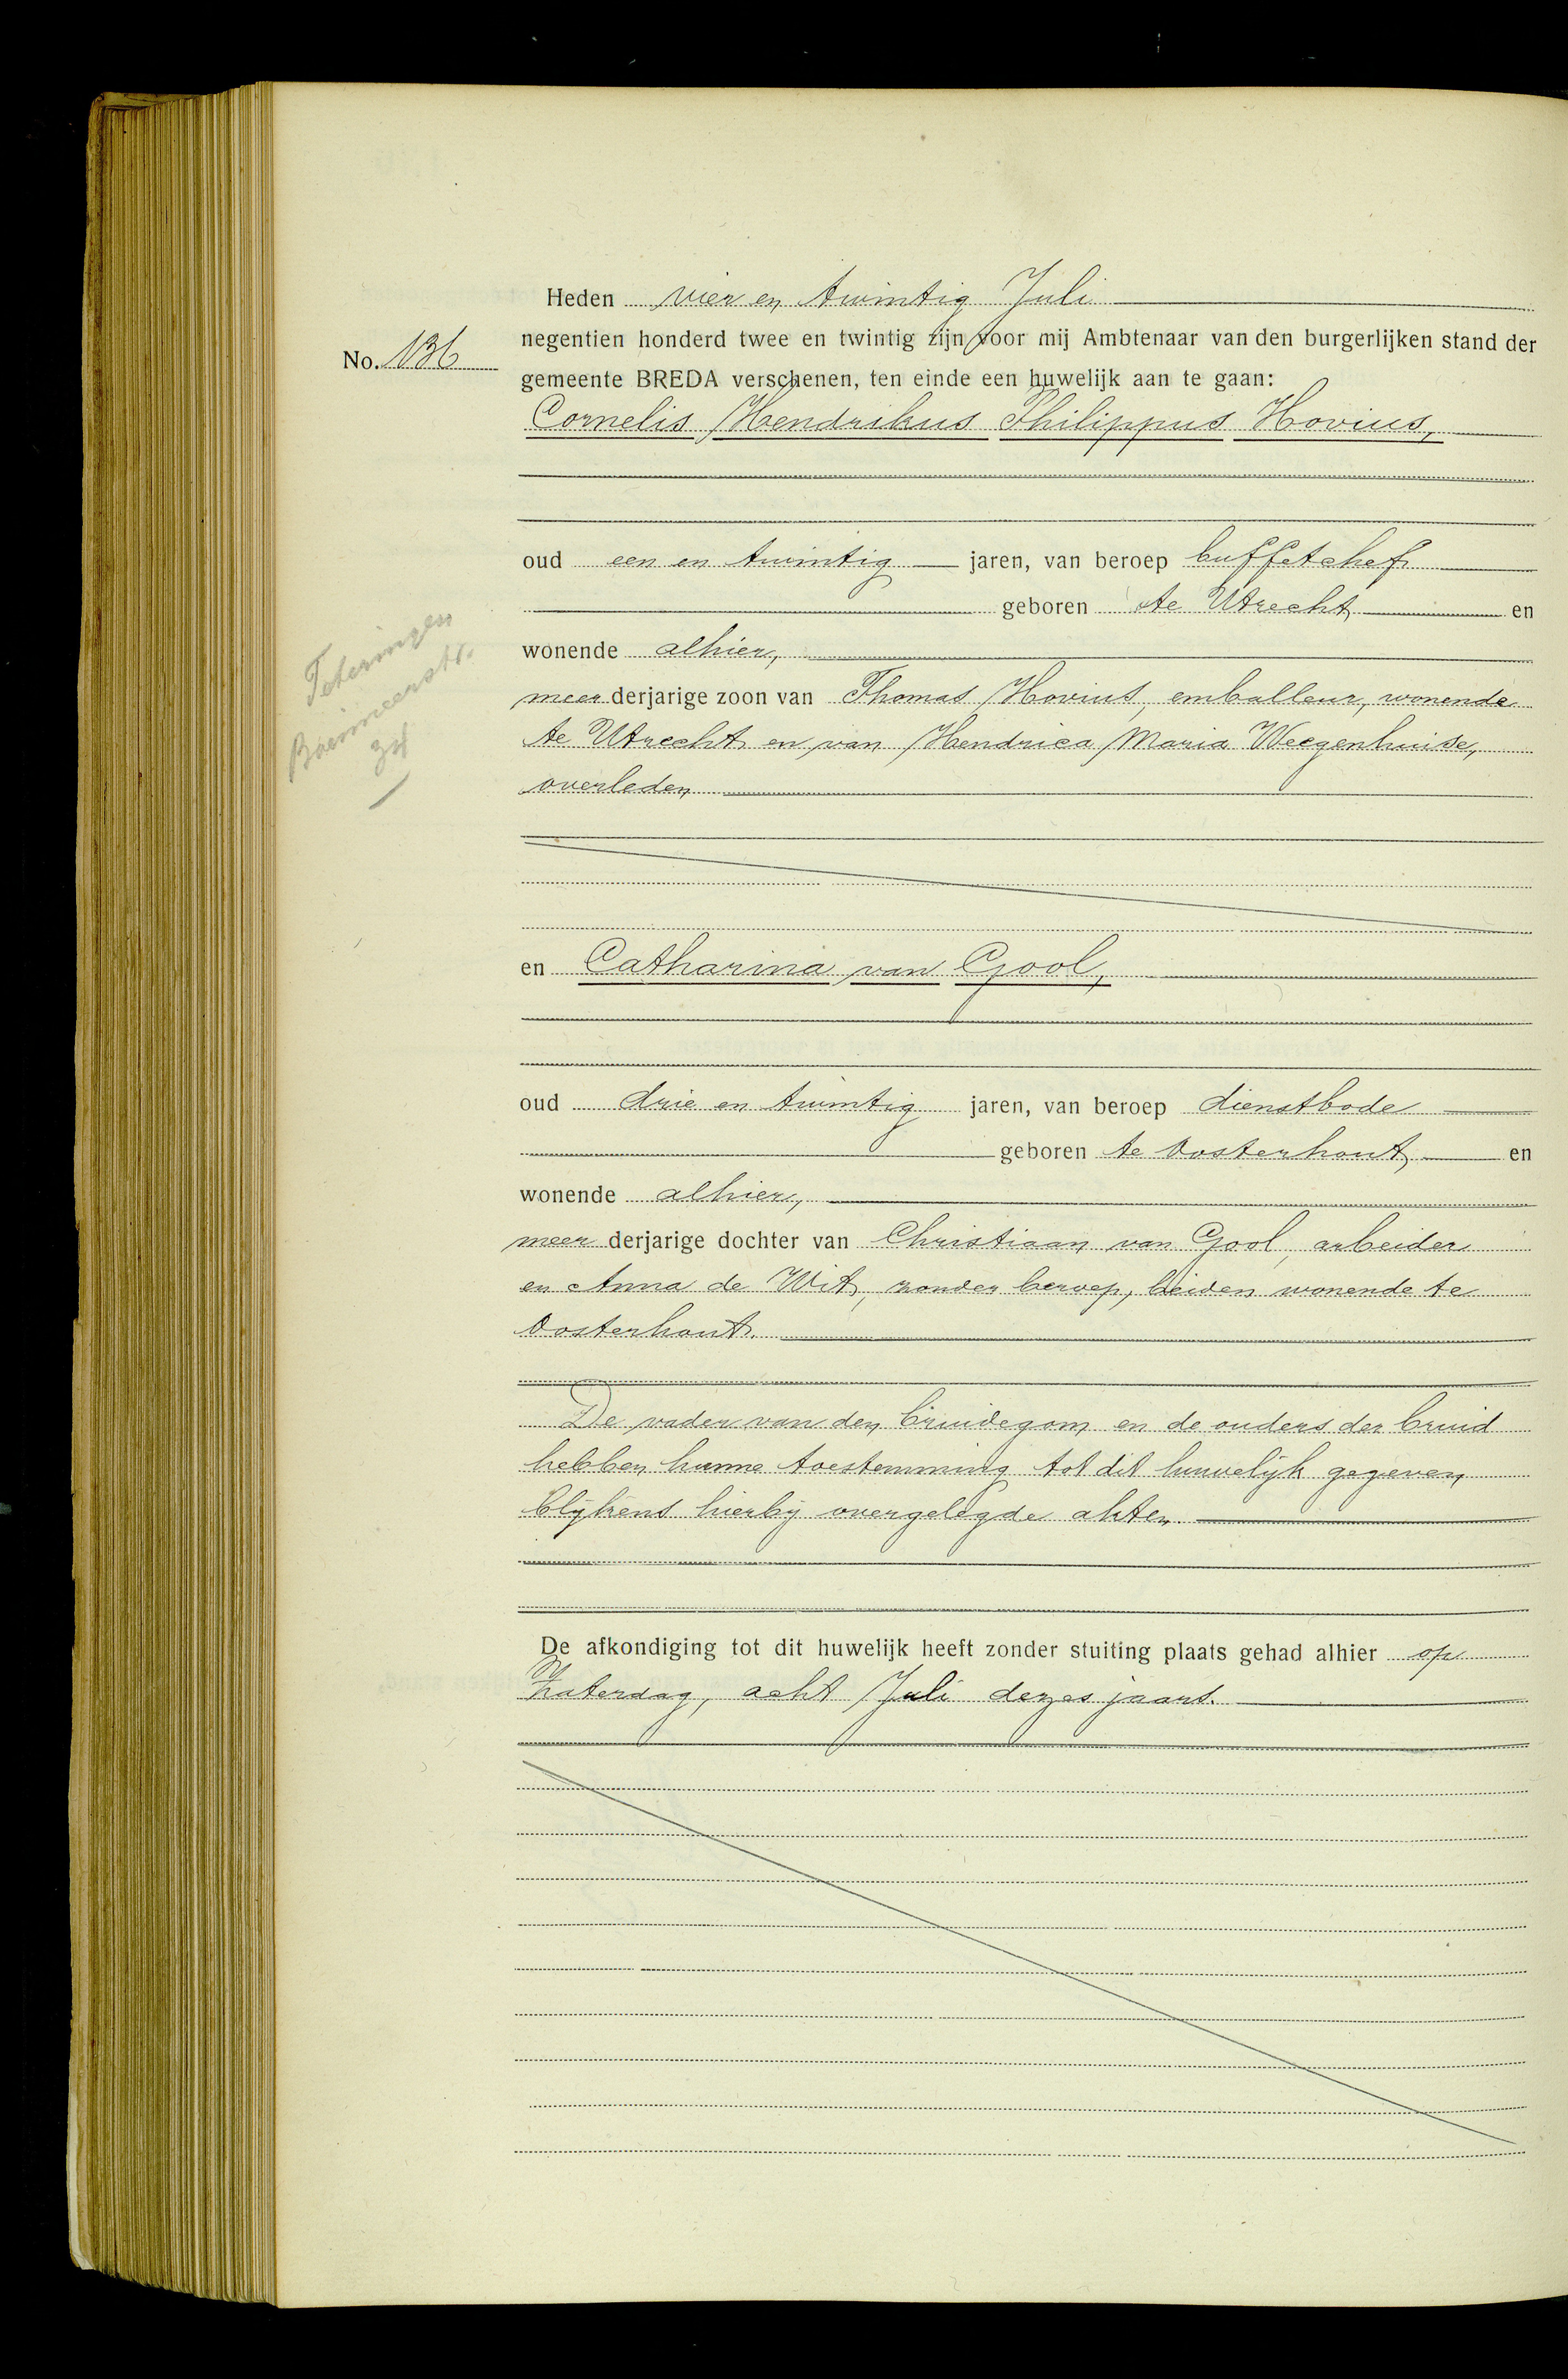 Heden vier en twintig Juli
negentien honderd twee en twintig zijn voor mij Ambtenaar van den burgerlijken stand der
No. 136
gemeente BREDA verschenen, ten einde een huwelijk aan te gaan:
Cornelis Hendrikus Philippus Hovius,
oud een en twintig jaren, van beroep buffetchef
geboren te Utrecht en
wonende alhier,
meerderjarige zoon van Thomas Hovius, emballeur, wonende
te Utrecht en van Hendrica Maria Weegenhuise,
overleden
Teteringen
Boeimeerstr.
en Catharina van Gool,
oud drie en twintig jaren, van beroep dienstbode
geboren te Oosterhout en
wonende alhier,
meerderjarige dochter van Christiaan van Gool, arbeider
en Anna de Wit, zonder beroep, beiden wonende te
Oosterhout.
De vader van den bruidegom en de ouders der bruid
hebben hunne toestemming tot dit huwelijk gegeven,
blijkens hierbij overgelegde akten.
De afkondiging tot dit huwelijk heeft zonder stuiting plaats gehad alhier op
Zaterdag, acht Juli dezes jaars.